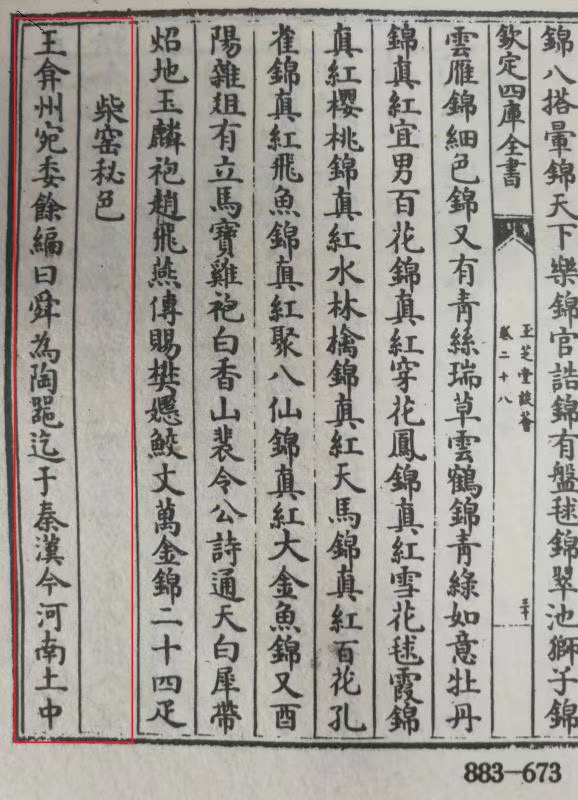 錦八搭暈錦天下樂錦官誥錦有盤毬錦翠池獅子錦
欽定四庫全書
玉芝堂談薈
卷二十八
三十
雲雁錦細色錦又有青絲瑞草雲鶴錦青綠如意牡丹
錦真紅宜男百花錦真紅穿花鳳錦真紅雪花毬霞錦
真紅櫻桃錦真紅水林檎錦真紅天馬錦真紅百花孔
雀錦真紅飛魚錦真紅聚八仙錦真紅大金魚錦又酉
陽雜俎有立馬寶雞袍白香山裴令公詩通天白犀帶
炤地玉麟袍趙飛燕傳賜樊嫕鮫文萬金錦二十四疋
柴窑秘色
王弇州宛委餘編曰舜為陶噐迄于秦漢今河南土中
883-673